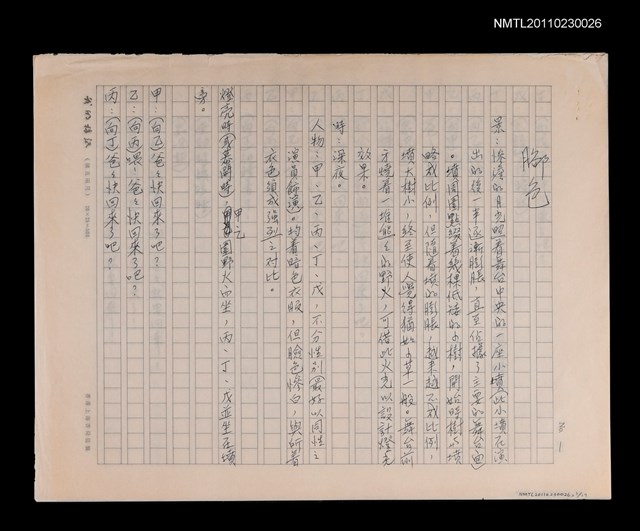 NMTL20110230026
No. 1
腳色
景：慘綠的月光照著舞台中央的一座小墳（此小墳在演
出的後一半逐漸膨脹，直至佔據了三分之二的舞台面）
。墳周圍點綴着幾棵低矮的小樹，開始時樹與墳
略成比例，但隨着墳的膨脹，越來越不成比例，
墳大樹小，終至使人覺得猶如小草一般。舞台前
方燒着一堆熊熊的野火，可借此火光以設計燈光
效果。
時：深夜。
人物：甲、乙、丙、丁、戊，不分性別（最好以同性之
演員飾演）。均着暗色衣服，但臉色慘白，與所着
衣色須成強烈之對比。
燈亮時（或幕開時），甲、乙圍野火而坐，丙、丁、戊並坐在墳
旁。
甲：（向乙）爸爸快回來了吧？
乙：（向丙）喂，爸爸快回來了吧？
丙：（向丁）爸爸快回來了吧？